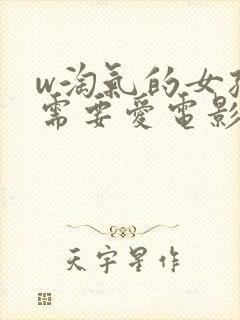 w淘氣的女孩
需要愛電影
天宇星作